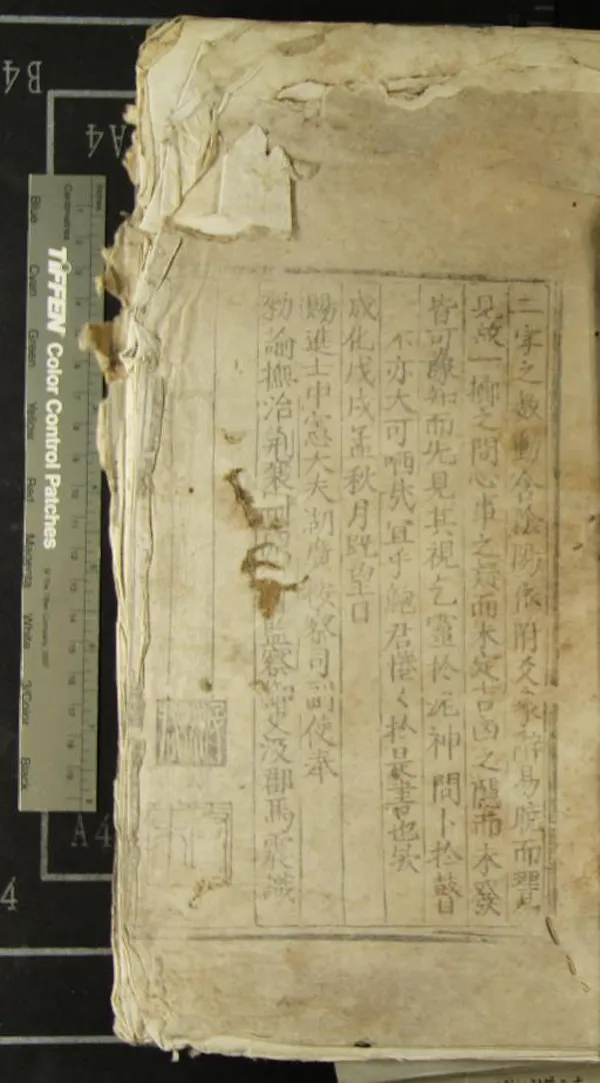 二字之數動合陰陽依附爻象辭易曉而
見故一擲之間心事之疑而未定吉凶之隱而未發
皆可豫知而先見其視乞靈扵泥神問卜扵瞽目
不亦大可哂哉宜乎鮑君惓々扵是書也
成化戊戌孟秋月既望日
賜進士中憲大夫湖廣按察司副使奉
勑諭撫治荊襄四監察御史汶郡馬震識
B4
A4
A4
4
Centimetres
TIFFEN Color Control Patches
Blue Cyan Green Yellow Red Magenta White 3/Color Black